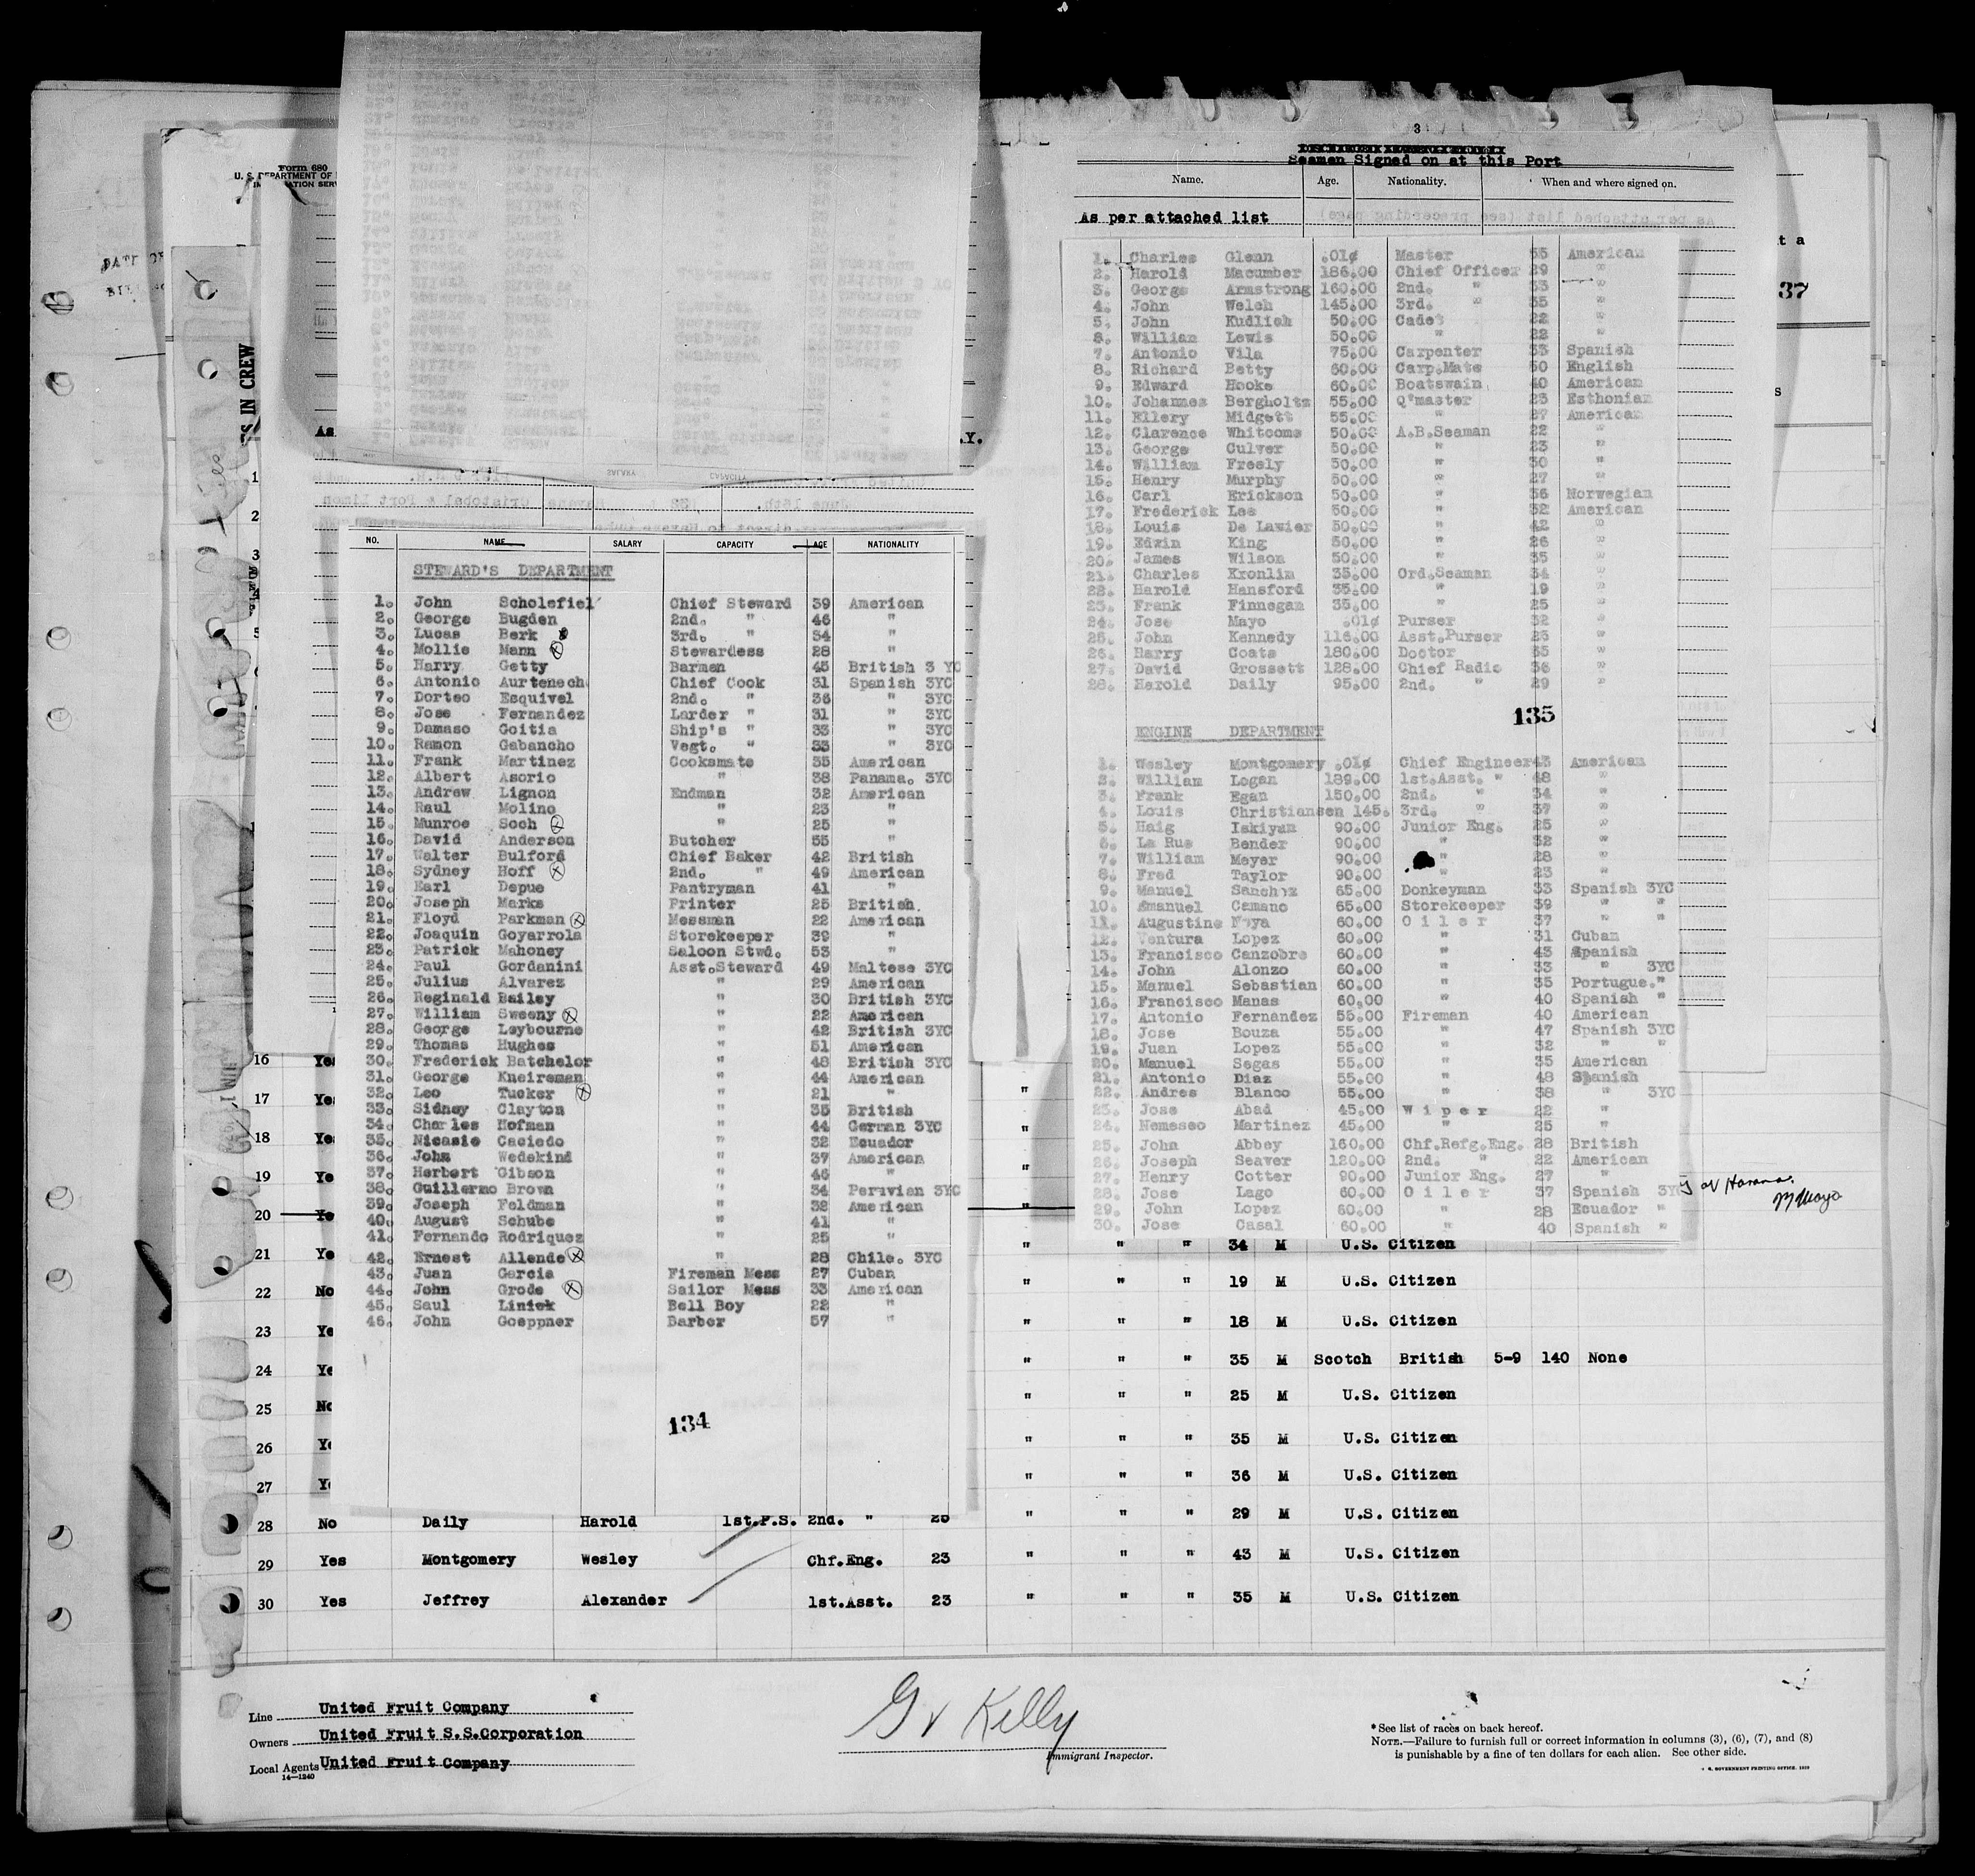 Form 680
U. S. DEPARTMENT OF
S IN CREW
3
Seamen Signed on at this Port
Name. Age. Nationality. When and where signed on.
As per attached list
37
NO. NAME SALARY CAPACITY AGE NATIONALITY
STEWARD'S DEPARTMENT
1. John Scholefiel Chief Steward 39 American
2. George Bugden 2nd. " 46 "
3. Lucas Berk 3rd. " 34 "
4. Mollie Mann Stewardess 28 "
5. Harry Getty Barman 45 British 3 YC
6. Antonio Aurtenech Chief Cook 31 Spanish 3YC
7. Dorteo Esquivel 2nd. " 36 " 3YC
8. Jose Fernandez Larder " 31 " 3YC
9. Damaso Goitia Ship's " 33 " 3YC
10. Ramon Gabancho Vegt. " 33 " 3YC
11. Frank Martinez Cooksmate 35 American
12. Albert Asorio " 38 Panama. 3YC
13. Andrew Lignon Endman 32 American
14. Raul Molino " 23 "
15. Munroe Soch " 25 "
16. David Anderson Butcher 55 "
17. Walter Bulford Chief Baker 42 British
18. Sydney Hoff 2nd. " 49 American
19. Earl Depue Pantryman 41 "
20. Joseph Marks Printer 25 British.
21. Floyd Parkman Messman 22 American
22. Joaquin Goyarrola Storekeeper 39 "
23. Patrick Mahoney Saloon Stwd. 53 "
24. Paul Gordanini Asst.Steward 49 Maltese 3YC
25. Julius Alvarez " 29 American
26. Reginald Bailey " 30 British 3YC
27. William Sweeny " 22 American
28. George Leybourne " 42 British 3YC
29. Thomas Hughes " 51 American
30. Frederick Batchelor " 48 British 3YC
31. George Kneireman " 44 American
32. Leo Tucker " 21 "
33. Sidney Clayton " 35 British
34. Charles Hofman " 44 German 3YC
35. Nicasio Caciedo " 32 Ecuador
36. John Wedekind " 37 American
37. Herbert Gibson " 46 "
38. Guillermo Brown " 34 Peruvian 3YC
39. Joseph Feldman " 32 American
40. August Schube " 41 "
41. Fernando Rodriquez " 25 "
42. Ernest Allende " 28 Chile. 3YC
43. Juan Garcia Fireman Mess 27 Cuban
44. John Grode Sailor Mess 33 American
45. Saul Liniek Bell Boy 22 "
46. John Goeppner Barber 57 "
134
1. Charles Glenn .01¢ Master 55 American
2. Harold Macumber 186.00 Chief Officer 29 "
3. George Armstrong 160.00 2nd. " 33 "
4. John Welch 145.00 3rd. " 35 "
5. John Kudlich 50.00 Cadet 22 "
6. William Lewis 50.00 " 22 "
7. Antonio Vila 75.00 Carpenter 33 Spanish
8. Richard Betty 60.00 Carp.Mate 50 English
9. Edward Hooke 60.00 Boatswain 40 American
10. Johannes Bergholtz 55.00 Q'master 25 Esthonian
11. Ellery Midgett 55.00 " 27 American
12. Clarence Whitcome 50.00 A.B.Seaman 22 "
13. George Culver 50.00 " 23 "
14. William Freely 50.00 " 30 "
15. Henry Murphy 50.00 " 27 "
16. Carl Erickson 50.00 " 36 Norwegian
17. Frederick Lee 50.00 " 32 American
18. Louis De Lawier 50.00 " 42 "
19. Edwin King 50.00 " 26 "
20. James Wilson 50.00 " 35 "
21. Charles Kronlin 35.00 Ord.Seaman 34 "
22. Harold Hansford 35.00 " 19 "
23. Frank Finnegan 35.00 " 25 "
24. Jose Mayo .01¢ Purser 32 "
25. John Kennedy 116.00 Asst.Purser 25 "
26. Harry Coats 180.00 Doctor 35 "
27. David Grossett 128.00 Chief Radio 36 "
28. Harold Daily 95.00 2nd. " 29 "
135
ENGINE DEPARTMENT
1. Wesley Montgomery .01¢ Chief Engineer 43 American
2. William Logan 189.00 1st.Asst. " 48 "
3. Frank Egan 150.00 2nd. " 34 "
4. Louis Christiansen 145. 3rd. " 37 "
5. Haig Iskiyan 90.00 Junior Eng. 25 "
6. La Rue Bender 90.00 " 32 "
7. William Meyer 90.00 " 28 "
8. Fred Taylor 90.00 " 23 "
9. Manuel Sanchez 65.00 Donkeyman 33 Spanish 3YC
10. Emanuel Camano 65.00 Storekeeper 39 " "
11. Augustine Noya 60.00 Oiler 37 " "
12. Ventura Lopez 60.00 " 31 Cuban
13. Francisco Canzobre 60.00 " 43 Spanish
14. John Alonzo 60.00 " 33 " 3YC
15. Manuel Sebastian 60.00 " 35 Portugue. "
16. Francisco Manas 60.00 " 40 Spanish "
17. Antonio Fernandez 55.00 Fireman 40 American
18. Jose Bouza 55.00 " 47 Spanish 3YC
19. Juan Lopez 55.00 " 32 " "
20. Manuel Segas 55.00 " 35 American
21. Antonio Diaz 55.00 " 48 Spanish
22. Andres Blanco 55.00 " 38 " 3YC
23. Jose Abad 45.00 Wiper 22 "
24. Nemeseo Martinez 45.00 " 25 "
25. John Abbey 160.00 Chf.Refg.Eng. 28 British
26. Joseph Seaver 120.00 2nd. " 22 American
27. Henry Cotter 90.00 Junior Eng. 27 "
28. Jose Lago 60.00 Oiler 37 Spanish 3YC
29. John Lopez 60.00 " 28 Ecuador "
30. Jose Casal 60.00 " 40 Spanish "
at Havana.
16 Yes
17 Yes "
18 Yes "
19 Yes "
20 Ye "
21 Ye " " " 34 M U.S. Citizen
22 No " " " 19 M U.S. Citizen
23 Ye " " " 18 M U.S. Citizen
24 Ye " " " 35 M Scotch British 5-9 140 None
25 No " " " 25 M U.S. Citizen
26 Ye " " " 35 M U.S. Citizen
27 Ye " " " 36 M U.S. Citizen
28 No Daily Harold 1st.P.S. 2nd. " 28 " " " 29 M U.S. Citizen
29 Yes Montgomery Wesley Chf.Eng. 23 " " " 43 M U.S. Citizen
30 Yes Jeffrey Alexander 1st.Asst. 23 " " " 35 M U.S. Citizen
Line United Fruit Company
Owners United Fruit S.S.Corporation
Local Agents United Fruit Company
14—1240
G V Kelly
Immigrant Inspector.
* See list of races on back hereof.
NOTE.—Failure to furnish full or correct information in columns (3), (6), (7), and (8)
is punishable by a fine of ten dollars for each alien. See other side.